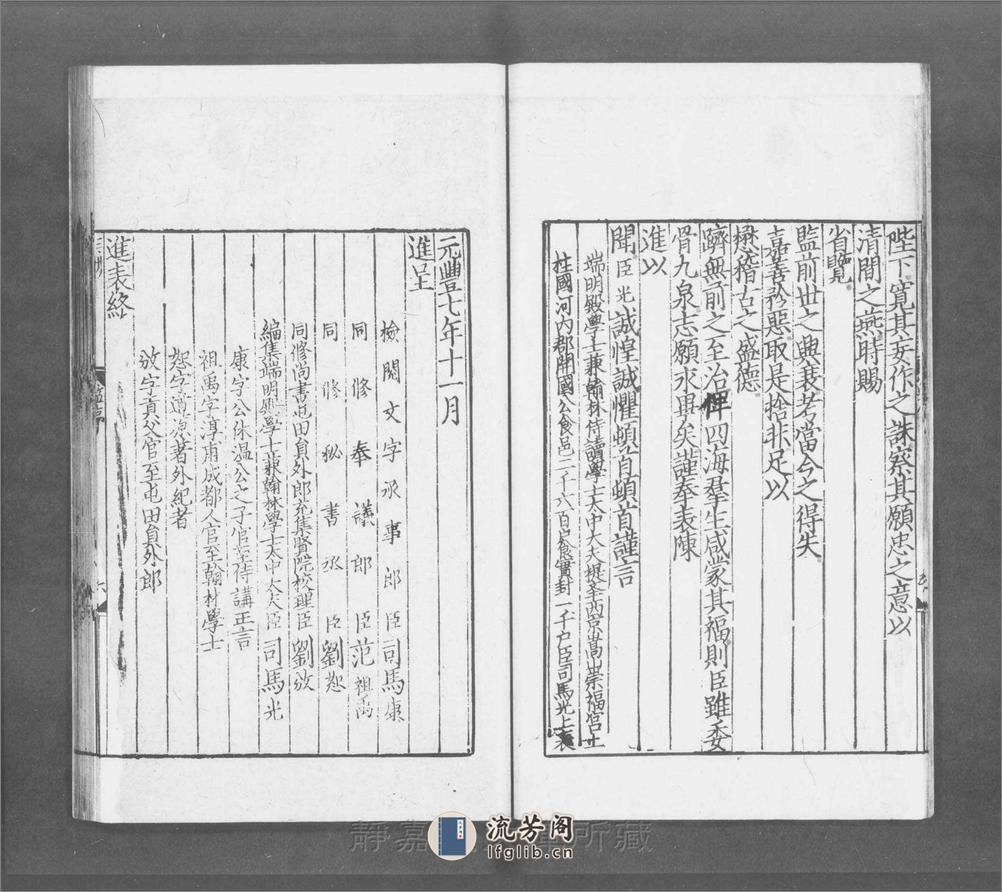 陛下寬其妄作之誅察其願忠之意以
清閒之燕時賜
省覽
監前世之興衰若當今之得失
嘉善矜惡取是捨非足以
懋稽古之盛德
躋無前之至治俾四海羣生咸蒙其福則臣雖委
骨九泉志願永畢矣謹奉表陳
進以
聞臣光誠惶誠懼頓首頓首謹言
端明殿學士兼翰林侍讀學士太中大夫提舉西京嵩山崇福宮上
柱國河内郡開國公食邑二千六百户食實封一千户臣司馬光上表
元豐七年十一月
進呈
檢閱文字承事郎臣司馬康
同修奉議郎臣范祖禹
同修秘書丞臣劉恕
同修尚書屯田員外郎充集賢院校理臣劉攽
編集端明殿學士兼翰林學士太中大夫臣司馬光
康字公休溫公之子官至侍講正言
祖禹字淳甫成都人官至翰林學士
恕字道原著外紀者
攽字貢父官至屯田員外郎
進表終
六
静嘉 所藏
流芳阁
lfglib.cn